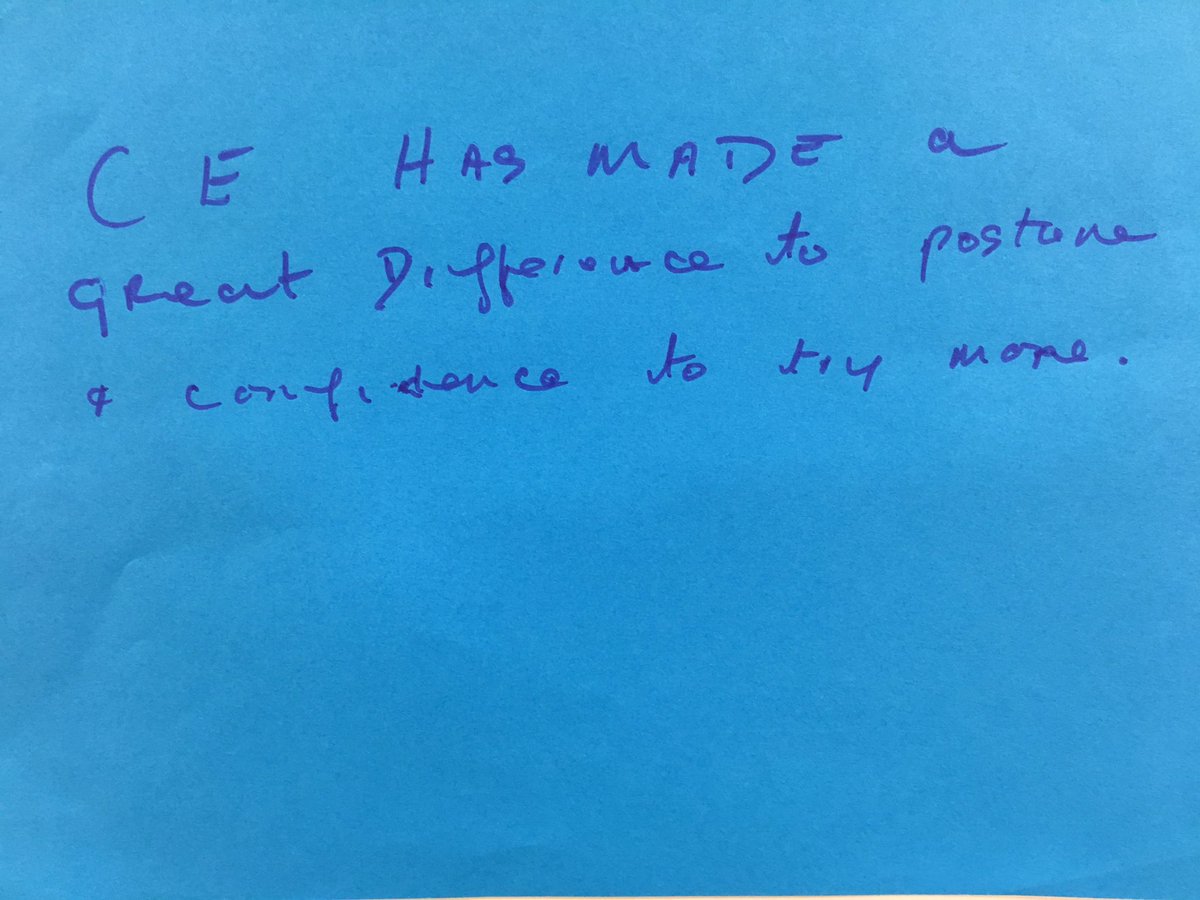 CE HAS MADE a
great Difference to posture
& confidence to try more.